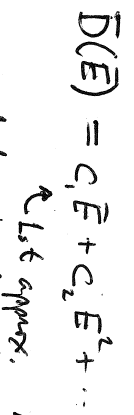 D̄(Ē) = c₁Ē + c₂E² + ···
↖ 1st approx.